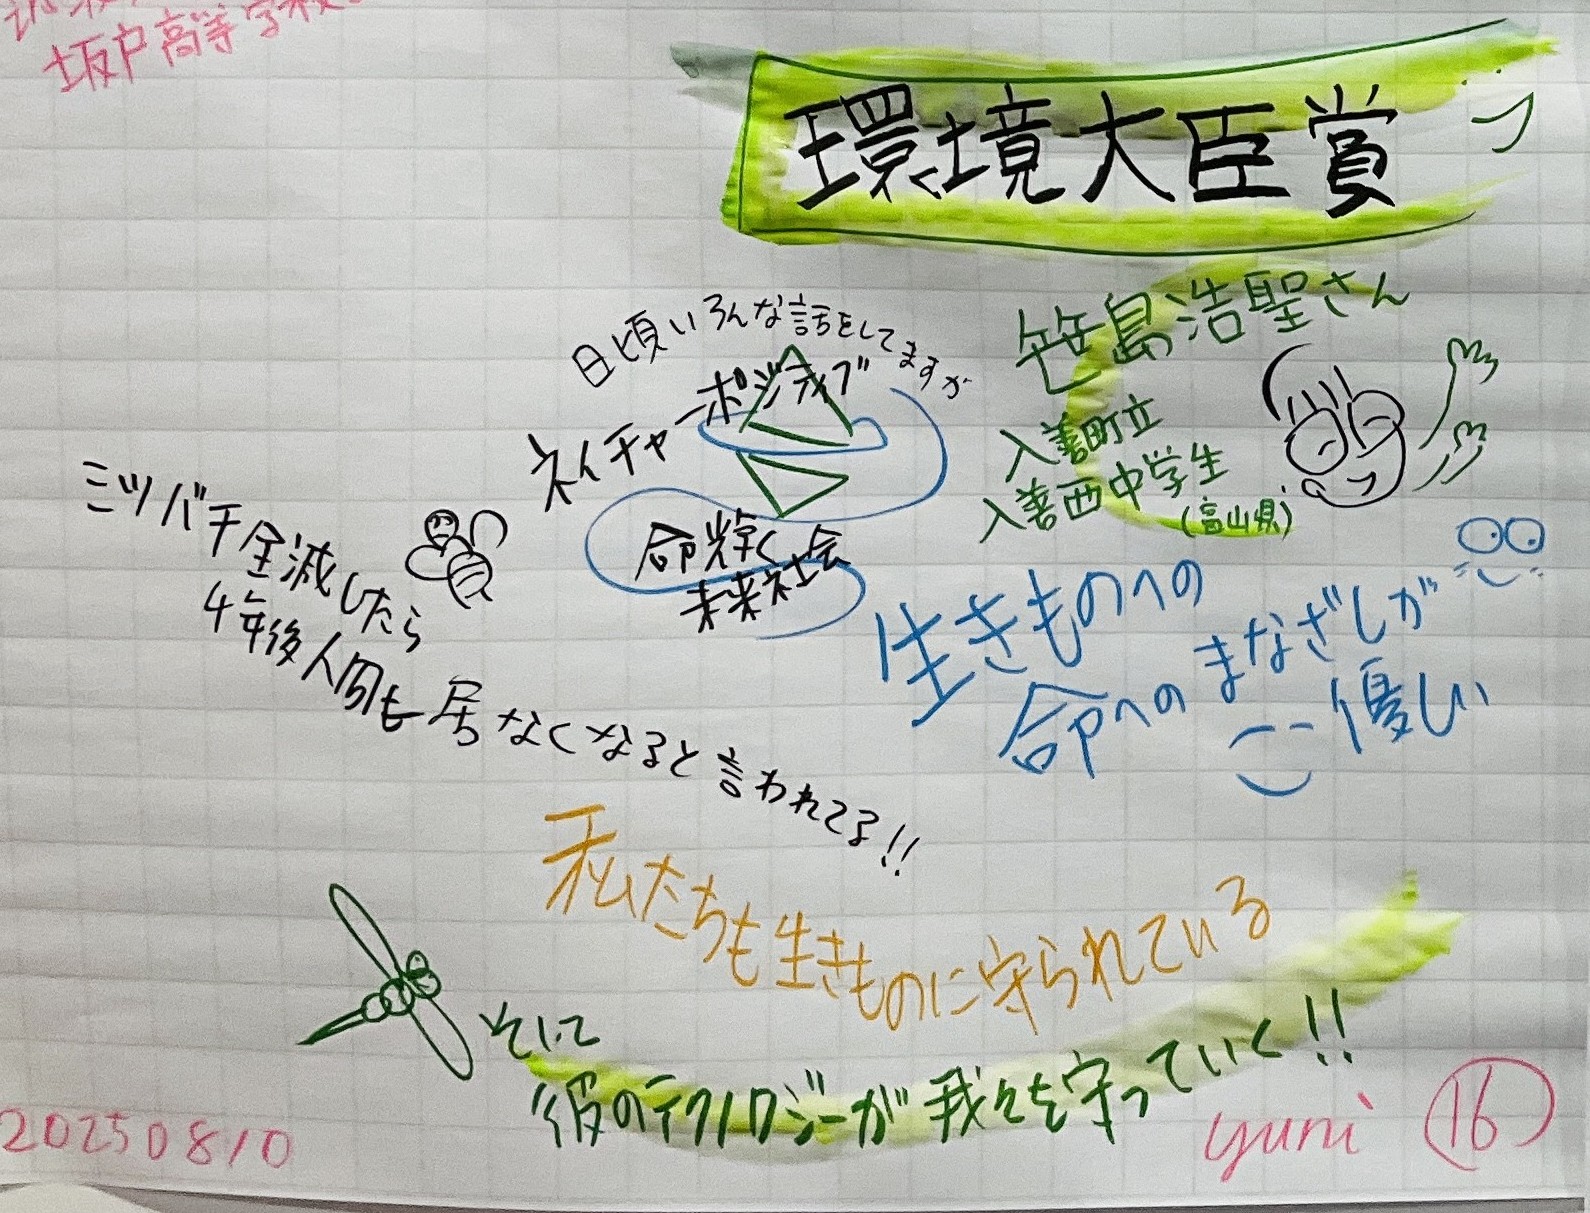 坂戸高等学校
環境大臣賞
笹島浩聖さん
入善町立
入善西中学生
(富山県)
日頃いろんな話をしてますが
ネイチャーポジティブ
命輝く
未来社会
ミツバチ全滅したら
4年後人間も居なくなると言われてる!!
生きものへの
命へのまなざしが
優しい
私たちも生きものに守られている
そして
彼のテクノロジーが我々を守っていく!!
20250810
yuni
16